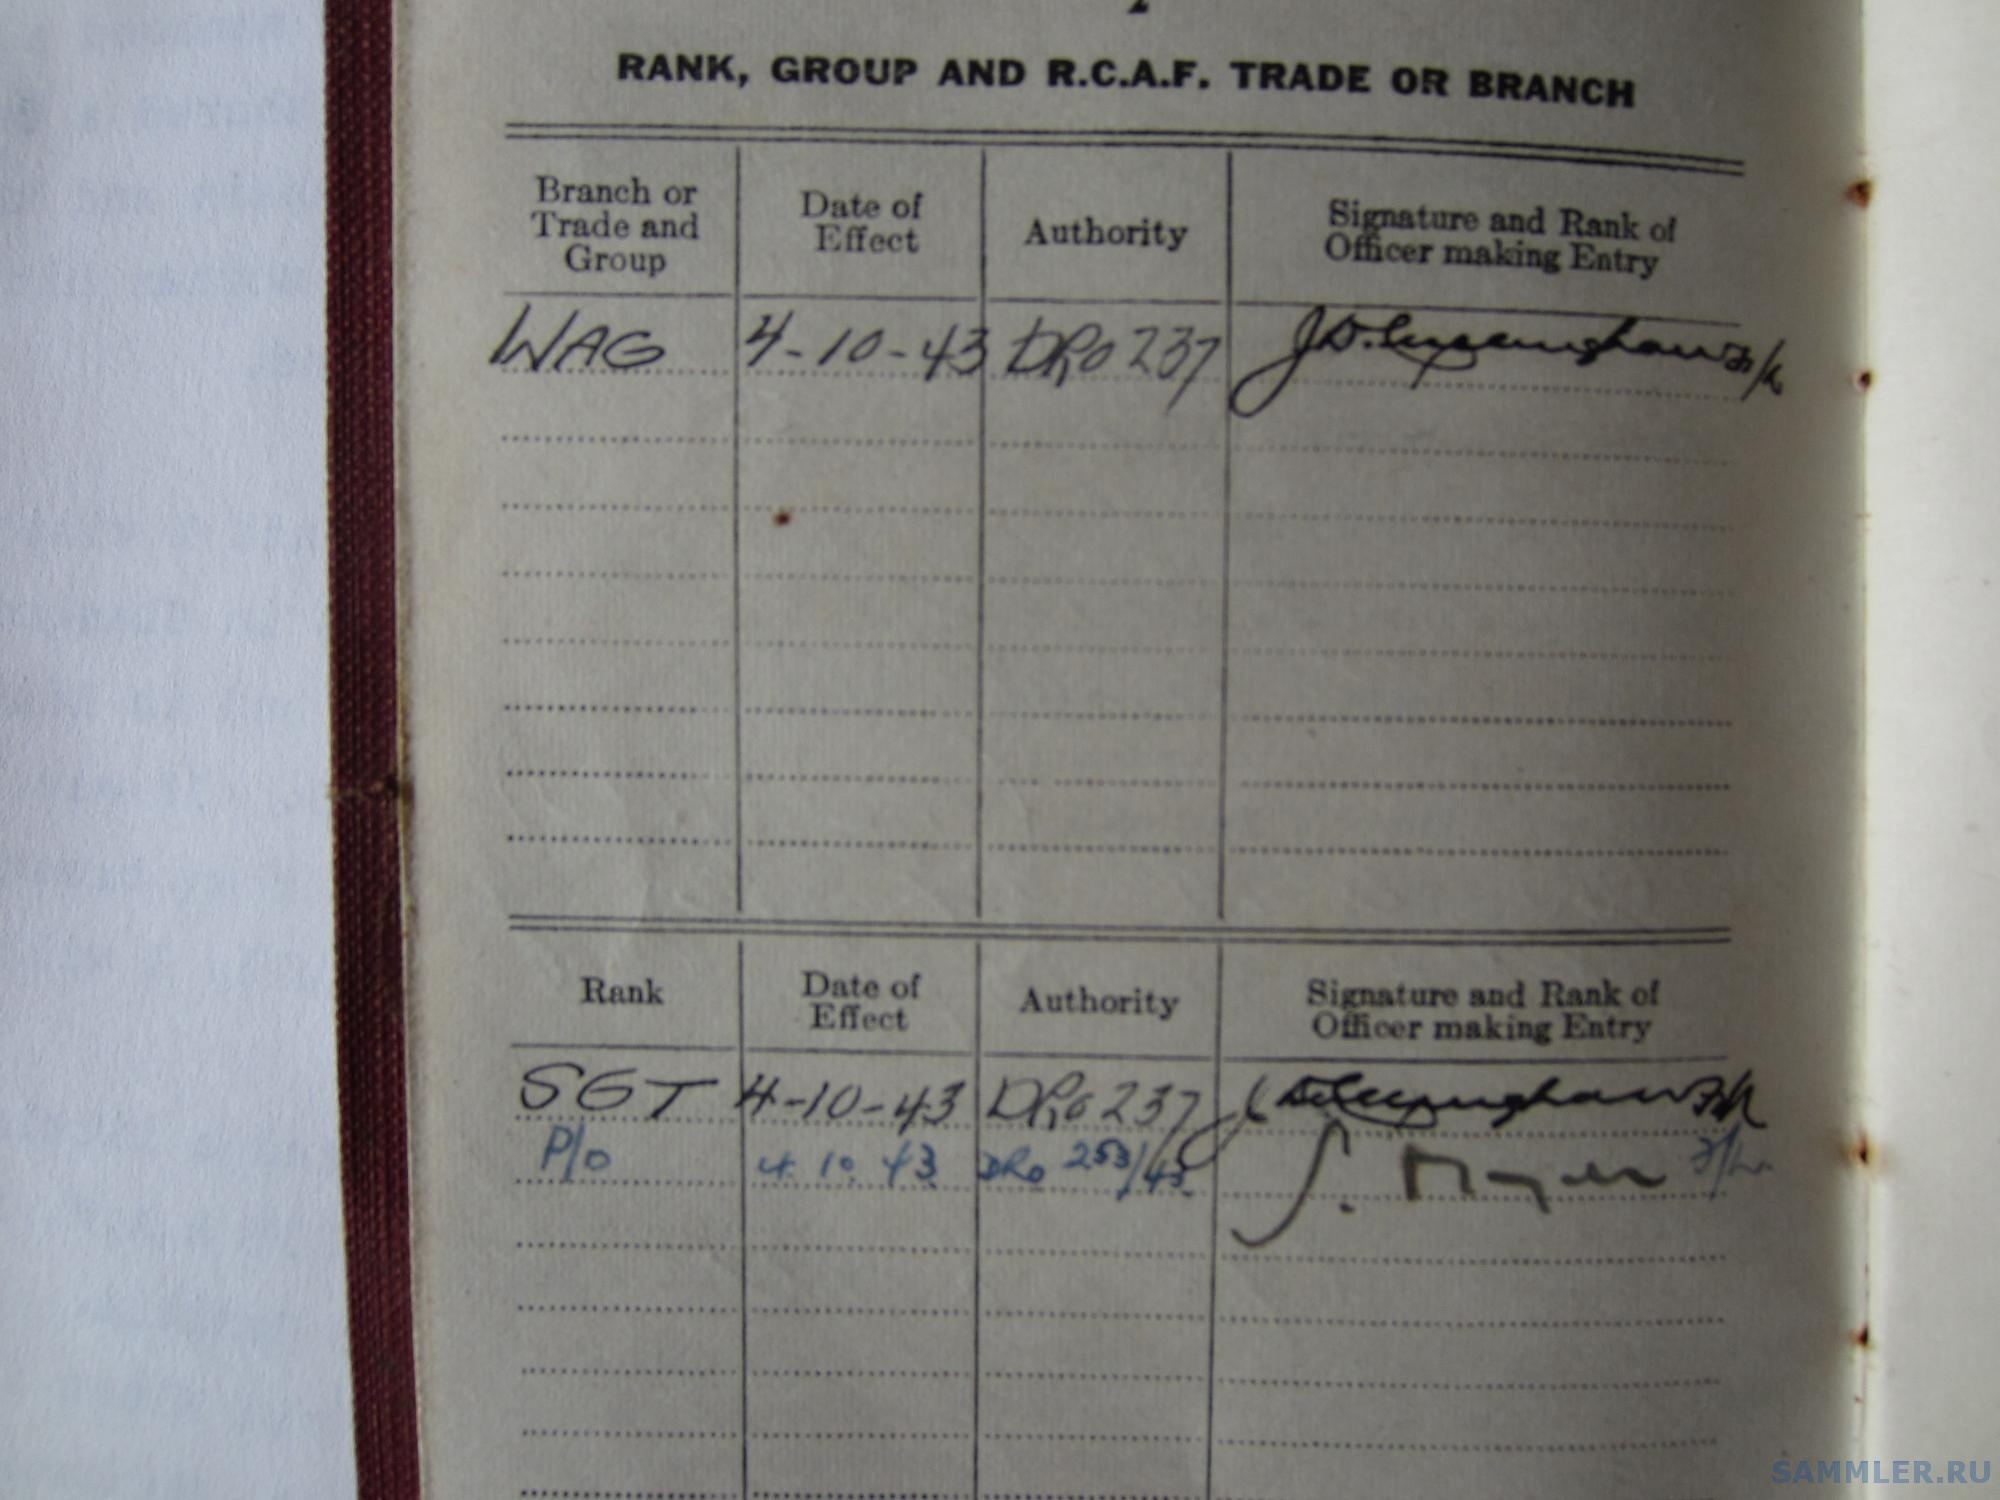 2
RANK, GROUP AND R.C.A.F. TRADE OR BRANCH
Branch or
Trade and
Group
Date of
Effect
Authority
Signature and Rank of
Officer making Entry
WAG 4-10-43 DRO 237
Rank
Date of
Effect
Authority
Signature and Rank of
Officer making Entry
SGT 4-10-43 DRO 237
P/O 4. 10. 43 DRO 253/43
SAMMLER.RU